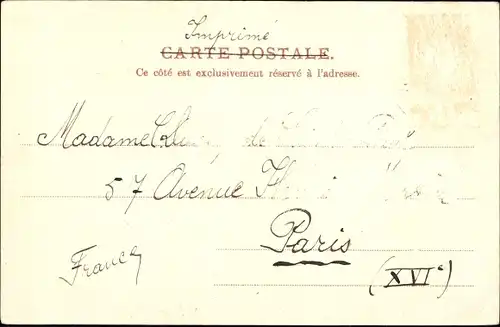 Imprimé
CARTE POSTALE.
Ce côté est exclusivement réservé à l'adresse.
Madame de
57 Avenue
Paris
France
(XVIe)